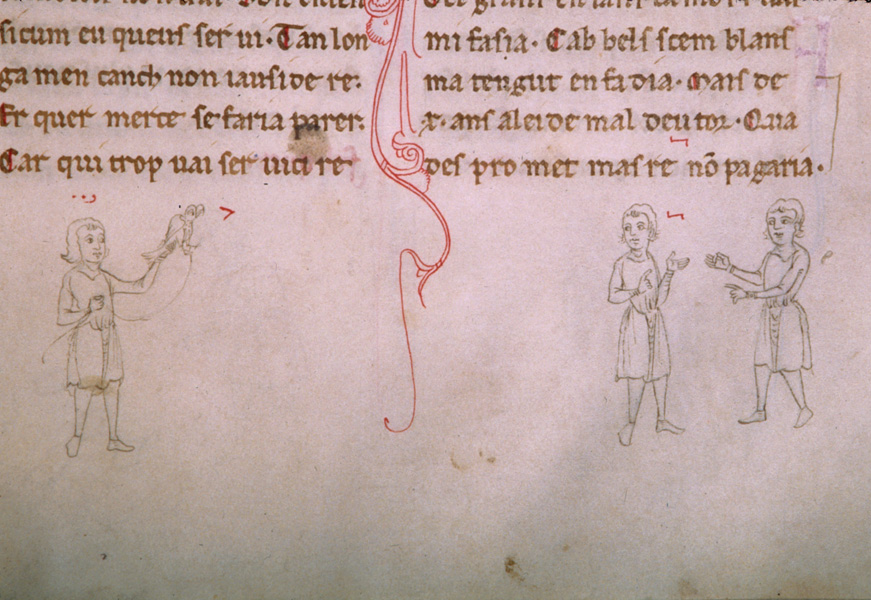 sicum eu queus ser ui. Tan lon
ga men canch non iausi de re.
Er quer merce se faria parer.
Car qui trop uai ser uici re
mi fasia. Cab bels sem blans
ma tengut en fadia. Mais de
x. ans a lei de mal deutor. Qua
des pro met mas re nō pagaria.